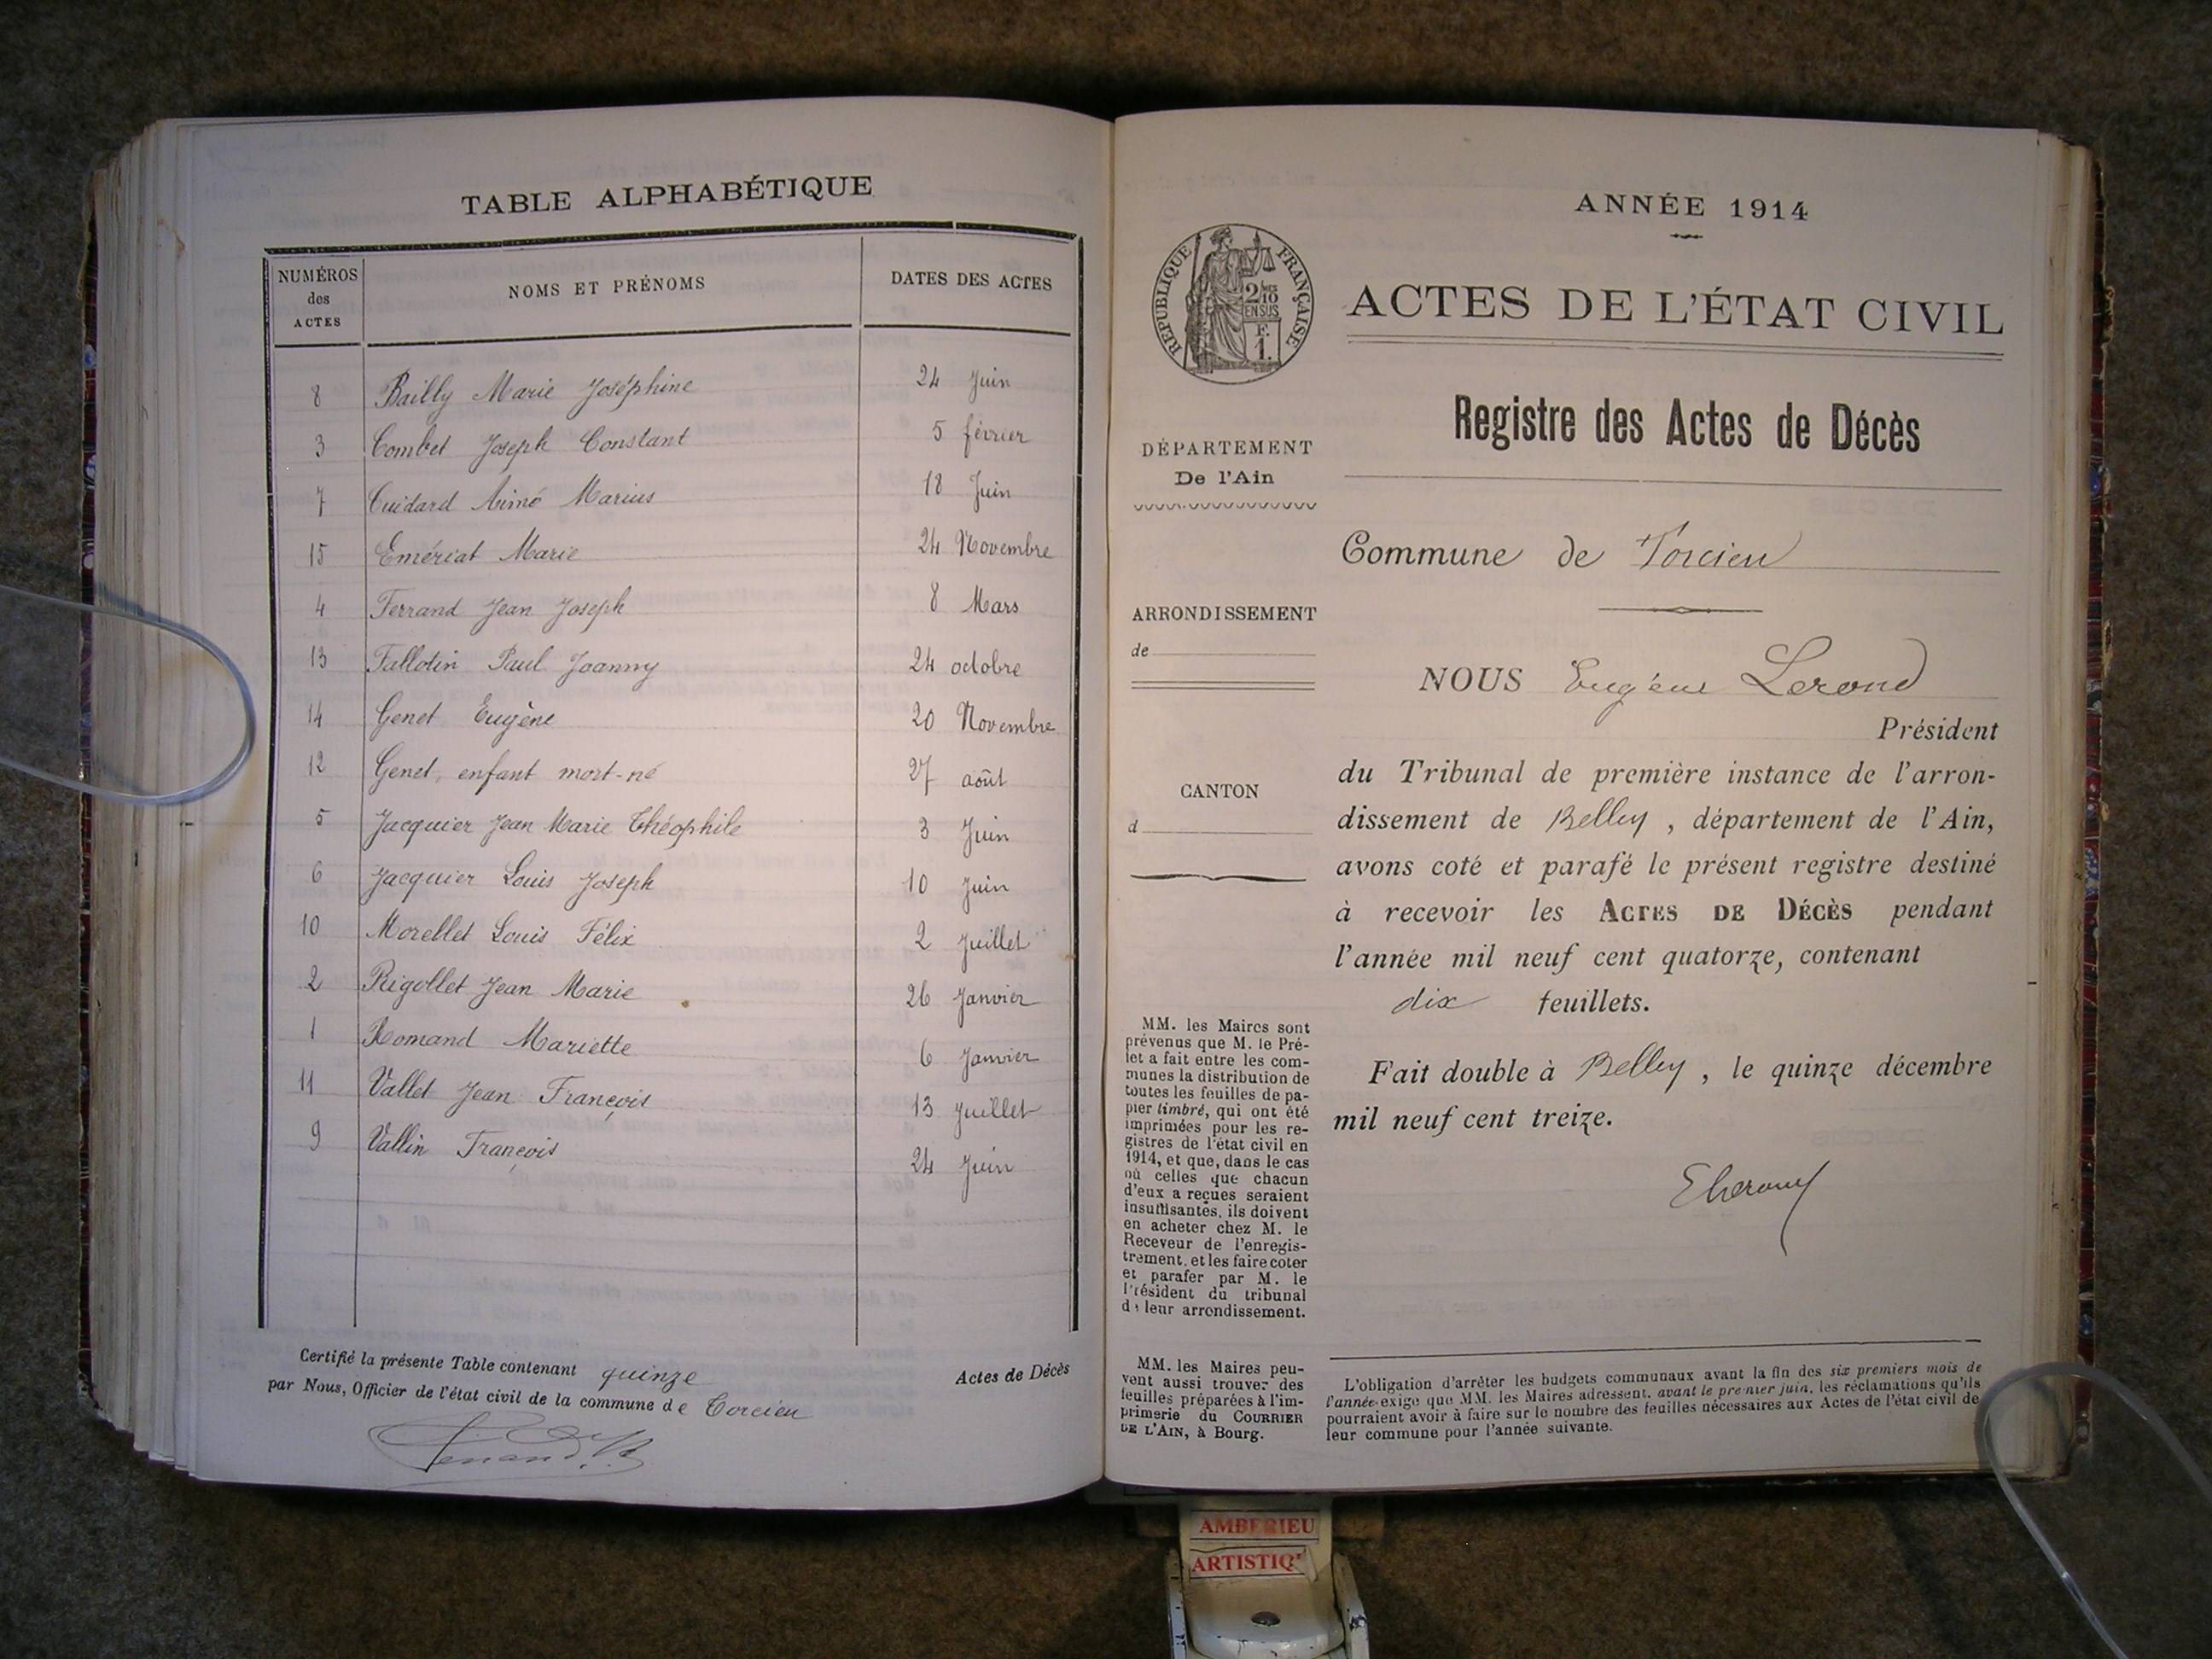 TABLE ALPHABÉTIQUE
NUMÉROS des ACTES NOMS ET PRÉNOMS DATES DES ACTES
8 Bailly Marie Joséphine 24 Juin
3 Combet Joseph Constant 5 février
7 Cuidard Aimé Marius 18 Juin
15 Emériat Marie 24 Novembre
4 Ferrand Jean Joseph 8 Mars
13 Fallotin Paul Joanny 24 octobre
14 Genet Eugène 20 Novembre
12 Genet, enfant mort-né 27 août
5 Jacquier Jean Marie Théophile 3 Juin
6 Jacquier Louis Joseph 10 Juin
10 Morellet Louis Félix 2 Juillet
2 Rigollet Jean Marie 26 Janvier
1 Romand Mariette 6 Janvier
11 Vallet Jean François 13 Juillet
9 Vallin François 24 Juin
Certifié la présente Table contenant quinze Actes de Décès
par Nous, Officier de l'état civil de la commune de Torcieu
ANNÉE 1914
RÉPUBLIQUE FRANÇAISE
2/10
EN SUS
F.
1.
ACTES DE L'ÉTAT CIVIL
Registre des Actes de Décès
DÉPARTEMENT
De l'Ain
Commune de Torcieu
ARRONDISSEMENT
de
NOUS Eugène Lerond
Président
du Tribunal de première instance de l'arron-
dissement de Belley, département de l'Ain,
avons coté et parafé le présent registre destiné
à recevoir les ACTES DE DÉCÈS pendant
l'année mil neuf cent quatorze, contenant
dix feuillets.
Fait double à Belley, le quinze décembre
mil neuf cent treize.
CANTON
d
MM. les Maires sont
prévenus que M. le Pré-
fet a fait entre les com-
munes la distribution de
toutes les feuilles de pa-
pier timbré, qui ont été
imprimées pour les re-
gistres de l'état civil en
1914, et que, dans le cas
où celles que chacun
d'eux a reçues seraient
insuffisantes, ils doivent
en acheter chez M. le
Receveur de l'enregis-
trement, et les faire coter
et parafer par M. le
Président du tribunal
de leur arrondissement.
MM. les Maires peu-
vent aussi trouver des
feuilles préparées à l'im-
primerie du COURRIER
DE L'AIN, à Bourg.
L'obligation d'arrêter les budgets communaux avant la fin des six premiers mois de
l'année exige que MM. les Maires adressent, avant le premier juin, les réclamations qu'ils
pourraient avoir à faire sur le nombre des feuilles nécessaires aux Actes de l'état civil de
leur commune pour l'année suivante.
AMBERIEU
ARTISTIQ